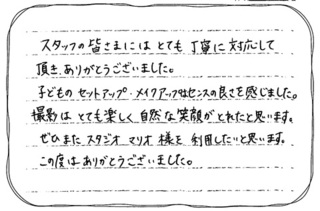 スタッフの皆さまには とても 丁寧に 対応して
頂き、ありがとうございました。
子どもの セットアップ・メイクアップはセンスの良さを感じました。
撮影は とても楽しく 自然な 笑顔が とれたと思います。
ぜひまた スタジオ マリオ 様を 利用したいと思います。
この度は ありがとうございました。